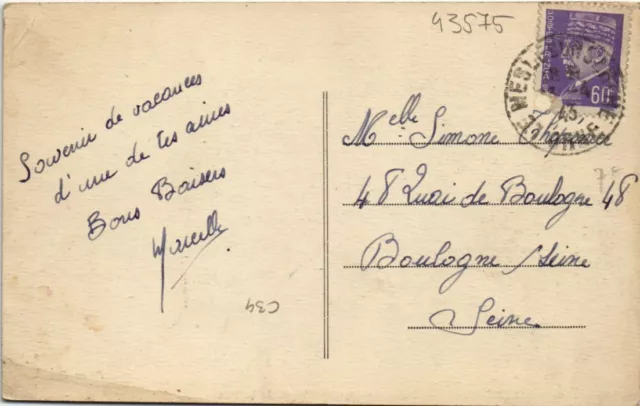 43575
60c
Souvenir de vacances
d'une de tes amies
Bons Baisers
Marcelle
Melle Simone
48 Quai de Boulogne 48
Boulogne /Seine
Seine
C34